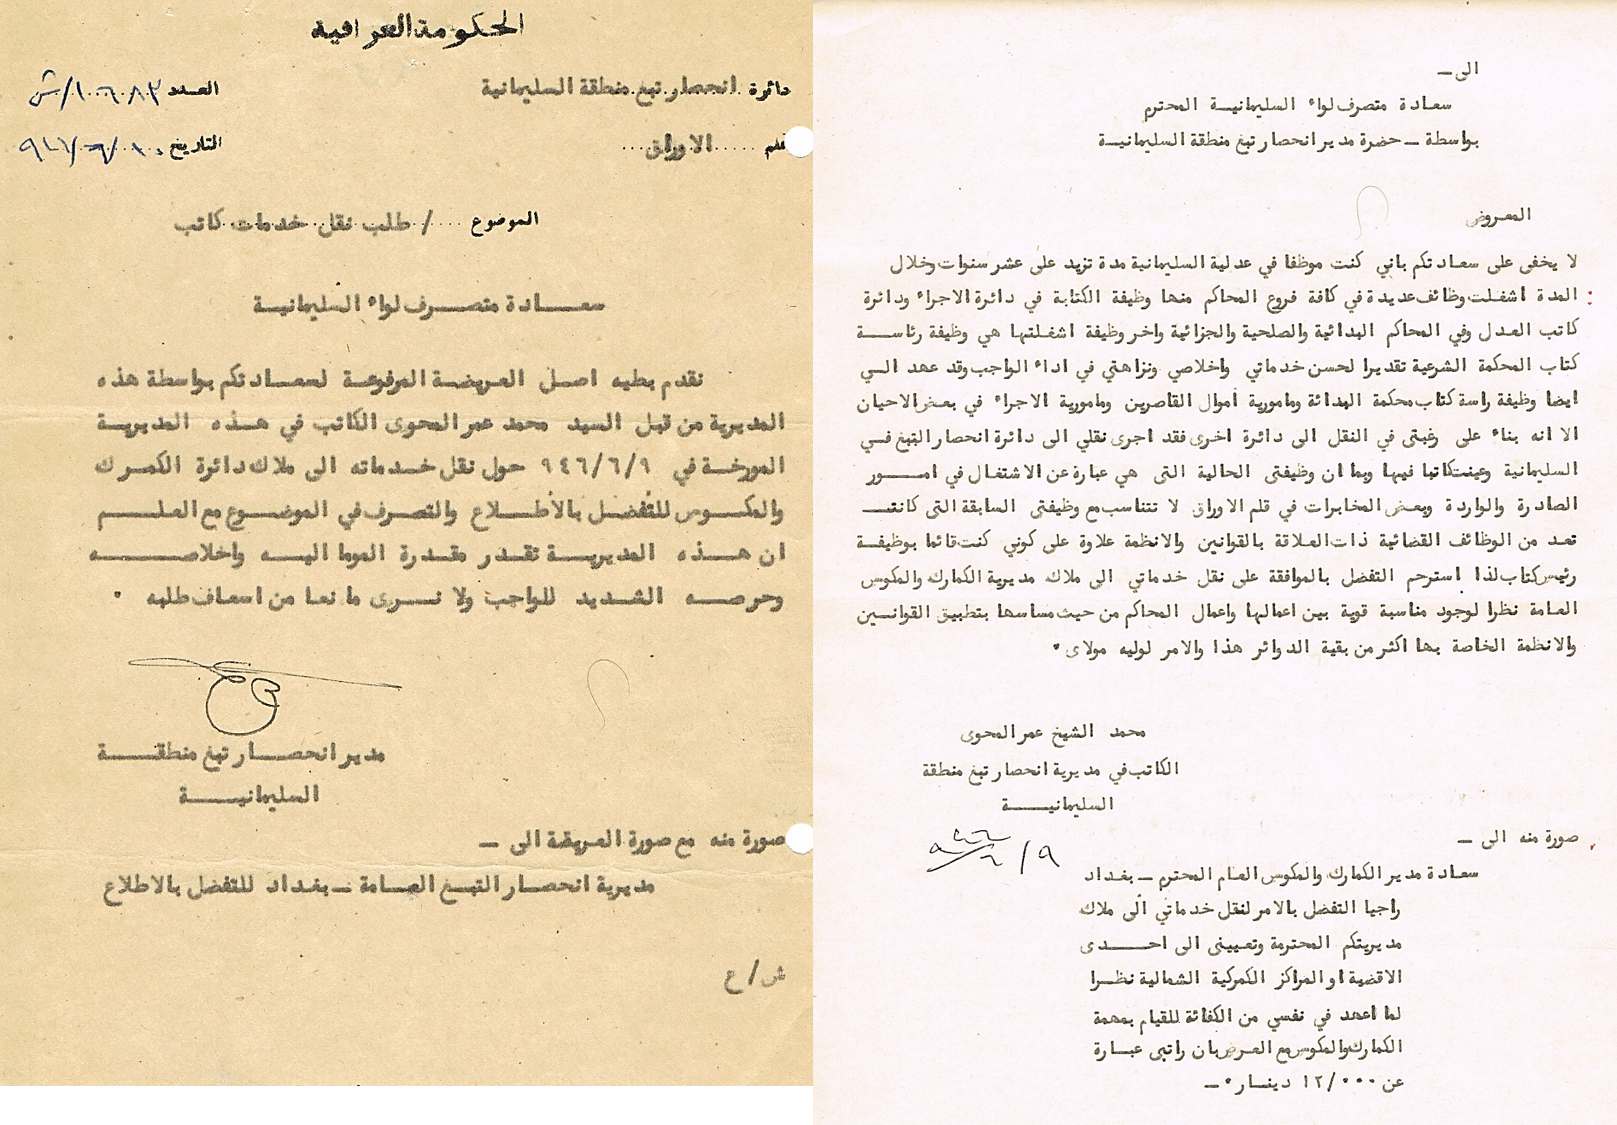 الحكومة العراقية
دائرة انحصار تبغ منطقة السليمانية
العدد ١٠٦٨٣/ش
قلم ..... الاوراق ...
التاريخ ١٠/٦/٩٤٦
الموضوع ..... / طلب نقل خدمات كاتب
سعـادة متصـرف لواء السليمانيـة
نقدم بطيه اصلى العريضة المرفوعة لسعادتكم بواسطة هذه
المديرية من قبل السيد محمد عمر المحوى الكاتب في هـذه المديريـة
المورخـة في ٩٤٦/٦/٩ حول نقل خـدماته الى ملاك دائرة الكمرك
والمكـوس للتفضل بالأطـلاع والتصرف في الموضوع مع العلـم
ان هـذه المديريـة تقدر مقـدرة الموما اليـه واخلاصـه
وحرصـه الشديد للواجب ولا نـرى مانعا من اسعاف طلبه ٠
مدير انحصـار تبغ منطقـة
السليمانيـة
صورة منه مع صورة العريضة الى ـ
مديرية انحصـار التبـغ العـامة ـ بغداد للتفضل بالاطلاع
ش/ع
الى ـ
سعادة متصرف لواء السليمانيـة المحترم
بواسطة ـ حضرة مدير انحصار تبغ منطقة السليمانيـة
المعروض
لا يخفى على سعادتكم باني كنت موظفا في عدلية السليمانية مدة تزيد على عشر سنوات وخلال
المدة اشغلت وظائف عديدة في كافة فروع المحاكم منها وظيفة الكتابة في دائرة الاجراء ودائرة
كاتب العدل وفي المحاكم البدائية والصلحية والجزائية واخر وظيفة اشغلتها هي وظيفة رئاسـة
كتاب المحكمة الشرعية تقديرا لحسن خدماتي واخلاصي ونزاهتي في اداء الواجب وقد عهد الـي
ايضا وظيفة راسة كتاب محكمة البدائة ومامورية أموال القاصرين ومامورية الاجراء في بعض الاحيان
الا انه بناء على رغبتى في النقل الى دائرة اخرى فقد اجرى نقلي الى دائرة انحصار التبغ فـي
السليمانية وعينت كاتبا فيها وبما ان وظيفتى الحالية التى هي عبارة عن الاشتغال في امـور
الصادرة والواردة وبعض المخابرات في قلم الاوراق لا تتناسب مع وظيفتى السابقة التى كانت
تعد من الوظائف القضائية ذات العلاقة بالقوانين والانظمة علاوة على كوني كنت قائما بوظيفـة
رئيس كتاب لذا استرحم التفضل بالموافقة على نقل خدماتي الى ملاك مديرية الكمارك والمكوس
العامة نظرا لوجود مناسبة قوية بين اعمالها واعمال المحاكم من حيث مساسها بتطبيق القوانـين
والانظمة الخاصة بها اكثر من بقية الدوائر هذا والامر لوليه مولاى ٠
محمد الشيخ عمر المحوى
الكاتب في مديرية انحصار تبغ منطقة
السليمانيـة
٩/٦/٩٤٦
صورة منه الى ـ
سعادة مدير الكمارك والمكوس العام المحترم ـ بغداد
راجيا التفضل بالامر لنقل خدماتي الى ملاك
مديريتكم المحترمة وتعيينى الى احـدى
الاقضية او المراكز الكمركية الشمالية نظـرا
لما اعهد في نفسي من الكفائة للقيام بمهمة
الكمارك والمكوس مع العرض بان راتبى عبـارة
عن ١٢/٠٠٠ دينـار ٠ ـ